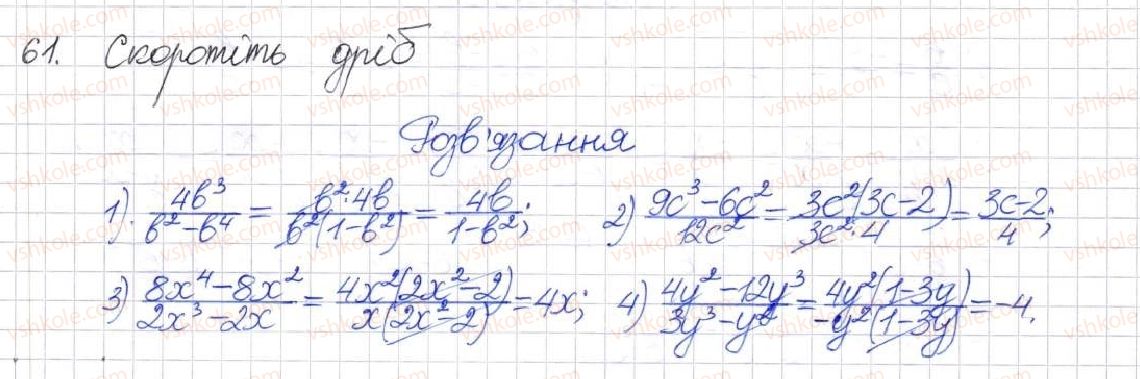 61. Скоротіть дріб
Розв'язання
1). 4b³/(b²-b⁴) = b²·4b/(b²(1-b²)) = 4b/(1-b²); 2) (9c³-6c²)/(12c²) = 3c²(3c-2)/(3c²·4) = (3c-2)/4;
3) (8x⁴-8x²)/(2x³-2x) = 4x²(2x²-2)/(x(2x²-2)) = 4x; 4) (4y²-12y³)/(3y³-y²) = 4y²(1-3y)/(-y²(1-3y)) = -4.